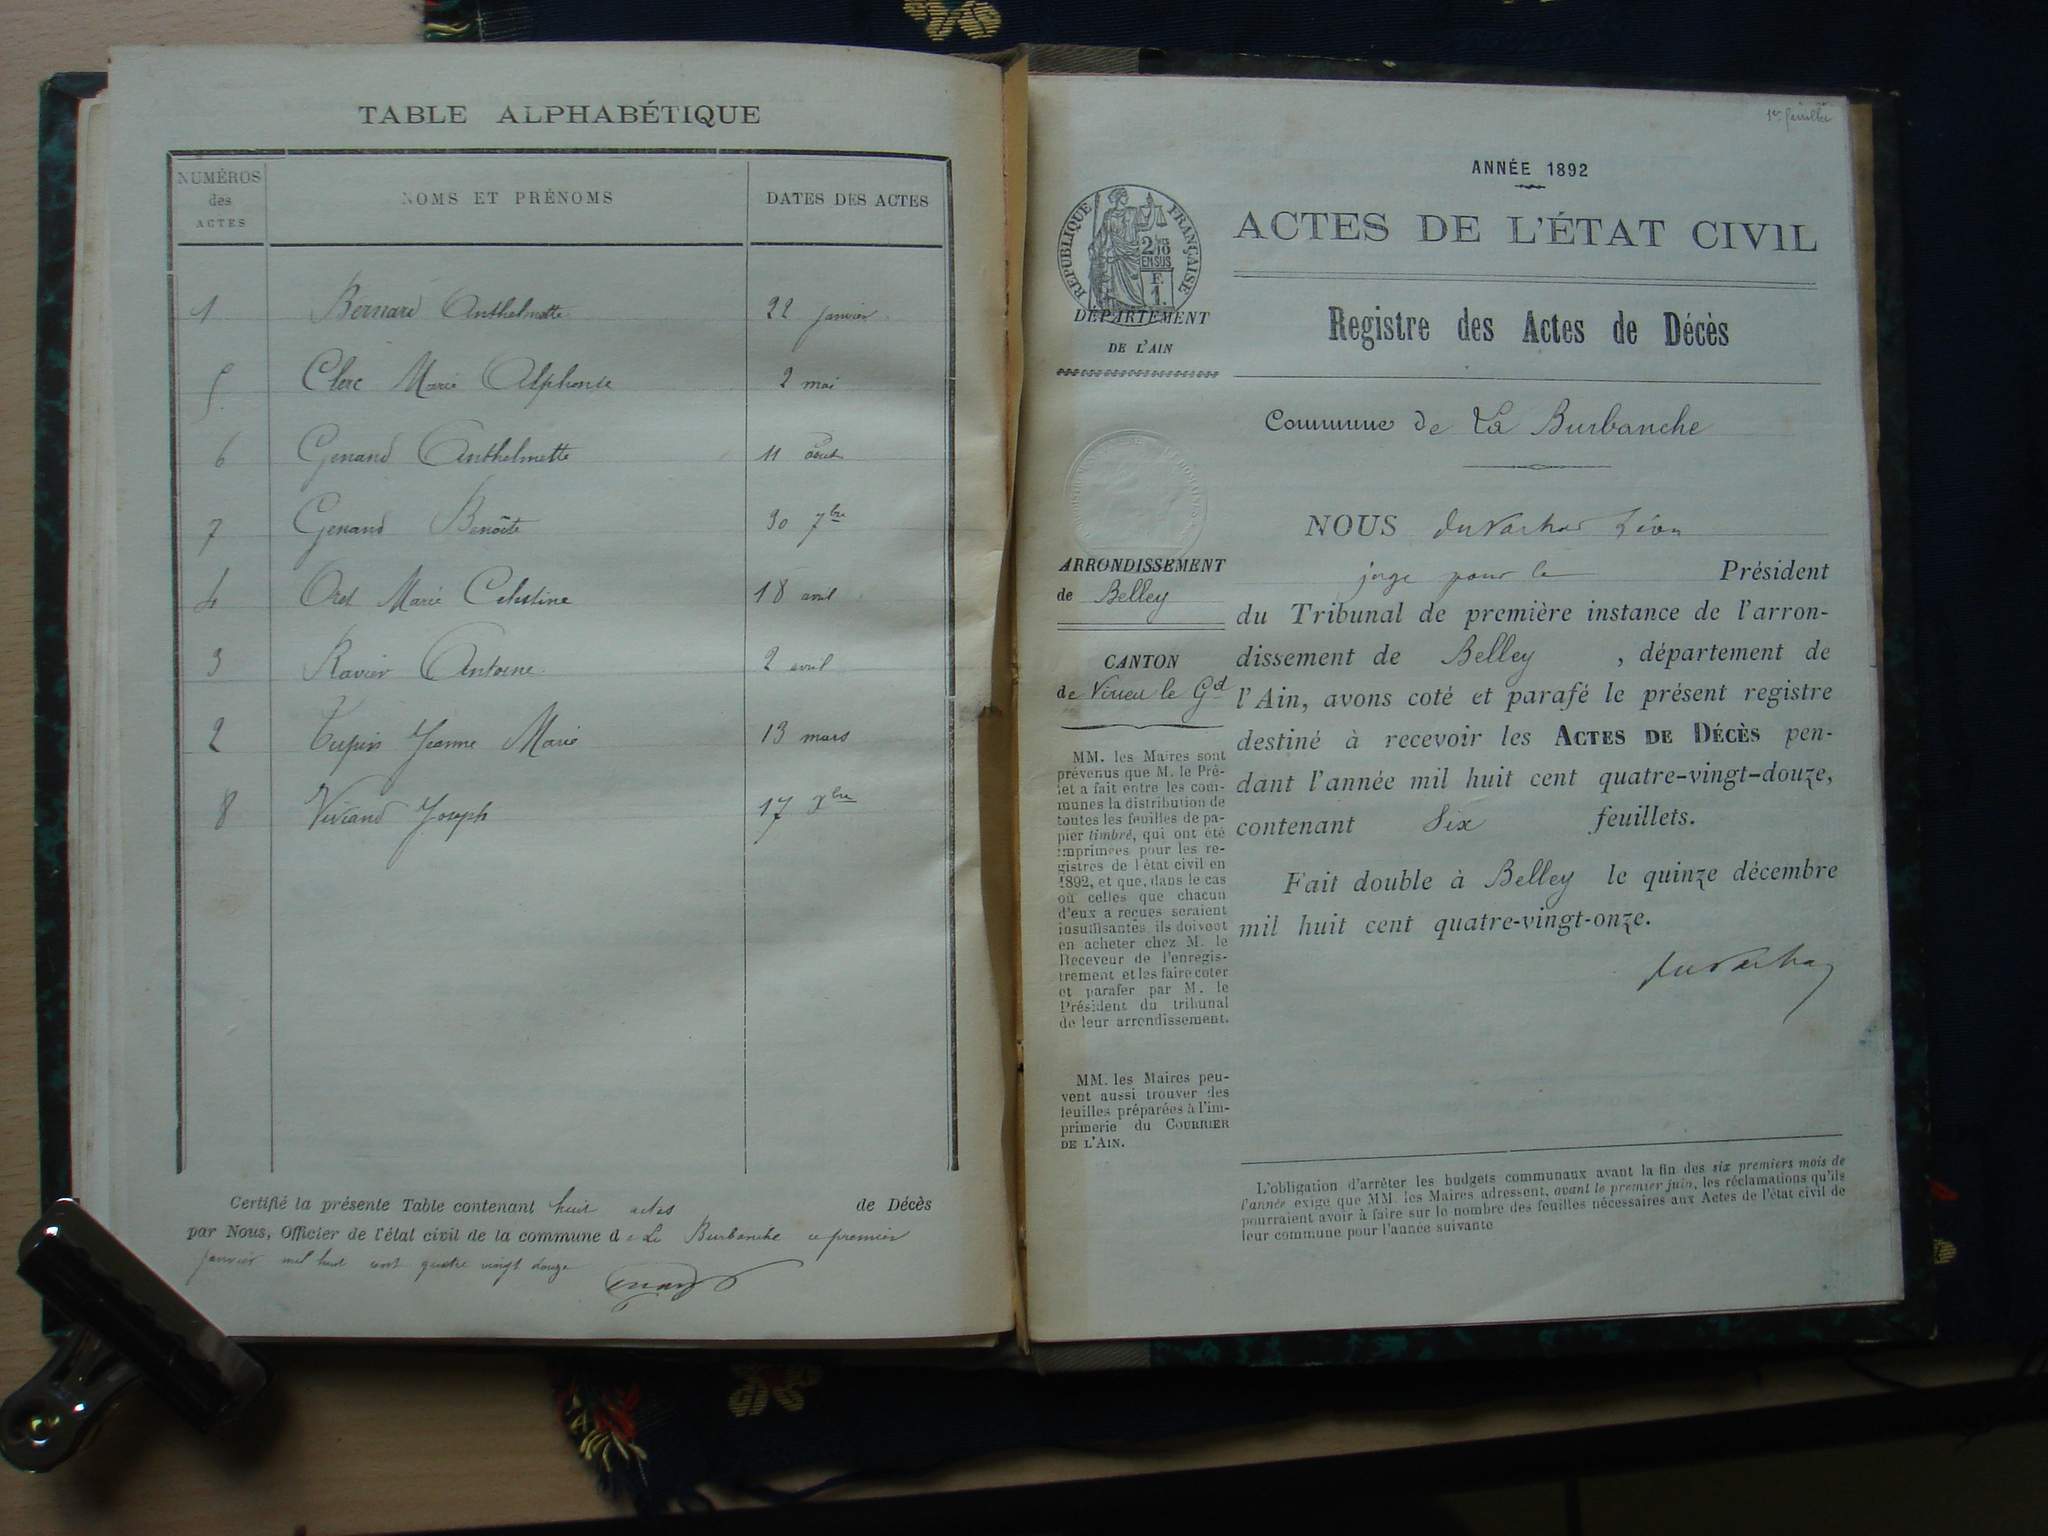 TABLE ALPHABÉTIQUE
NUMÉROS des ACTES NOMS ET PRÉNOMS DATES DES ACTES
1 Bernard Anthelmette 22 janvier
5 Clerc Marie Alphonse 2 mai
6 Genand Anthelmette 11 août
7 Genand Benoite 30 7bre
4 Oret Marie Celestine 18 avril
3 Ravier Antoine 2 avril
2 Tupin Jeanne Marie 13 mars
8 Viviand Joseph 17 Xbre
Certifié la présente Table contenant huit actes de Décès
par Nous, Officier de l'état civil de la commune de La Burbanche ce premier
janvier mil huit cent quatre vingt douze
1er feuillet
ANNÉE 1892
ACTES DE L'ÉTAT CIVIL
Registre des Actes de Décès
RÉPUBLIQUE FRANÇAISE
2/10
EN SUS
F
1.
DÉPARTEMENT
DE L'AIN
Commune de La Burbanche
ARRONDISSEMENT
de Belley
CANTON
de Virieu le Gd
MM. les Maires sont
prévenus que M. le Pré-
fet a fait entre les com-
munes la distribution de
toutes les feuilles de pa-
pier timbré, qui ont été
imprimées pour les re-
gistres de l'état civil en
1892, et que, dans le cas
où celles que chacun
d'eux a reçues seraient
insuffisantes, ils doivent
en acheter chez M. le
Receveur de l'enregis-
trement et les faire coter
et parafer par M. le
Président du tribunal
de leur arrondissement.
MM. les Maires peu-
vent aussi trouver des
feuilles préparées à l'im-
primerie du COURRIER
DE L'AIN.
NOUS Léon
juge pour le Président
du Tribunal de première instance de l'arron-
dissement de Belley , département de
l'Ain, avons coté et parafé le présent registre
destiné à recevoir les ACTES DE DÉCÈS pen-
dant l'année mil huit cent quatre-vingt-douze,
contenant Six feuillets.
Fait double à Belley le quinze décembre
mil huit cent quatre-vingt-onze.
L'obligation d'arrêter les budgets communaux avant la fin des six premiers mois de
l'année exige que MM. les Maires adressent, avant le premier juin, les réclamations qu'ils
pourraient avoir à faire sur le nombre des feuilles nécessaires aux Actes de l'état civil de
leur commune pour l'année suivante